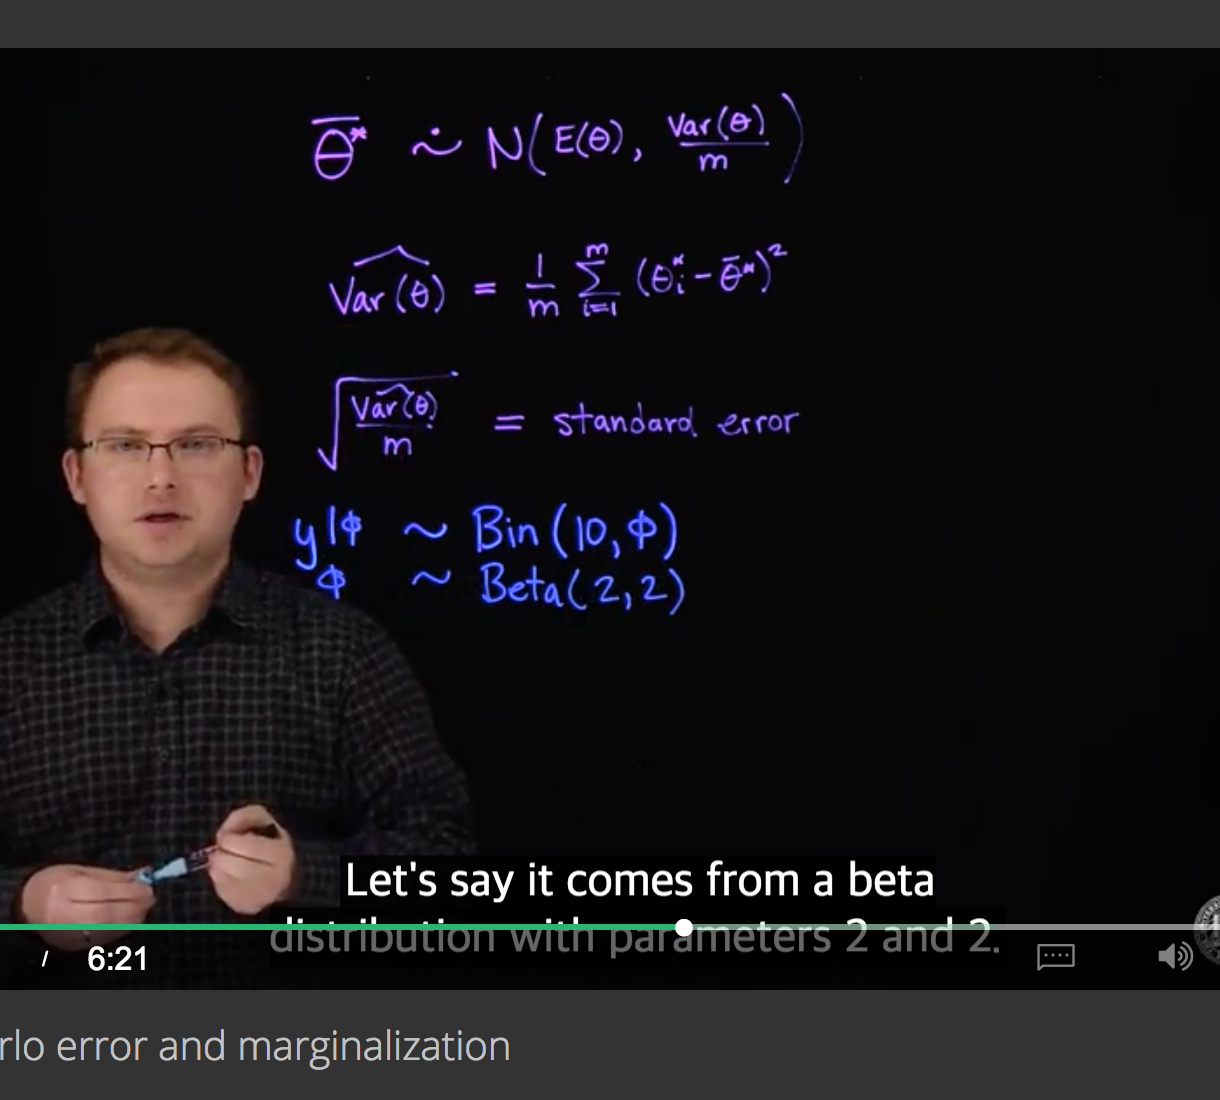 θ̄* ∼̇ N(E(θ), Var(θ)/m)
V̂ar(θ) = 1/m Σ_{i=1}^{m} (θ*_i - θ̄*)²
√(V̂ar(θ)/m) = standard error
y|ϕ ~ Bin(10, ϕ)
ϕ ~ Beta(2,2)
Let's say it comes from a beta
distribution with parameters 2 and 2.
/ 6:21
rlo error and marginalization